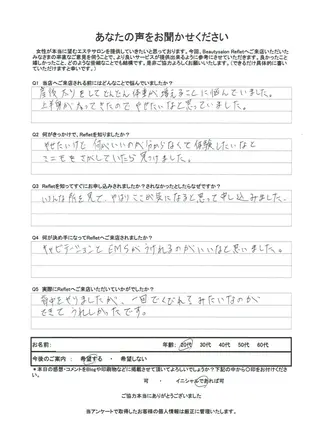 あなたの声をお聞かせください
女性が本当に望むエステサロンを提供していきたいと思っております。今回、Beautysalon Refletへご来店いただいた
みなさまの率直なご意見を伺うことで、より良いサービスが提供出来るように参考にさせていただきます。良かったこと
嬉しかったこと、どのような些細なことでも結構です。是非ご協力よろしくお願いいたします。(できるだけ具体的に書い
ていただけますと幸いです。)
Q1 当店へご来店される前にはどんなことで悩んでいましたか?
産後 だりをしてどんどん体重が増えることに悩んでいました。
上半身が太ってきたのでやせたいなと思っていました。
Q2 何がきっかけで、Refletを知りましたか?
やせたいけど何がいいのか分からなくて体験したいなと
ここをさがしていたら見つけました。
Q3 Refletを知ってすぐにお申し込みされましたか?されなかったとしたらなぜですか?
いろんな所を見て、やはりここが気になると思って申し込みました。
Q4 何が決め手になってRefletへご来店されましたか?
キャビテーションとEMSがうけれるのがいいなと思いました。
Q5 実際にRefletへご来店いただいていかがでしたか?
背中をやりましたが、一回でくびれてみたいなのが
できてうれしかったです。
お名前: 年齢: 20代 30代 40代 50代 60代
今後のご案内 : 希望する ・ 希望しない
*本日の感想・コメントをBlogや印刷物などに掲載させて頂いてよろしいでしょうか?下記の中から〇印をお付けください。
可 ・ イニシャルであれば可
ご協力本当にありがとうございました
当アンケートで取得したお客様の個人情報は厳正に管理いたします。